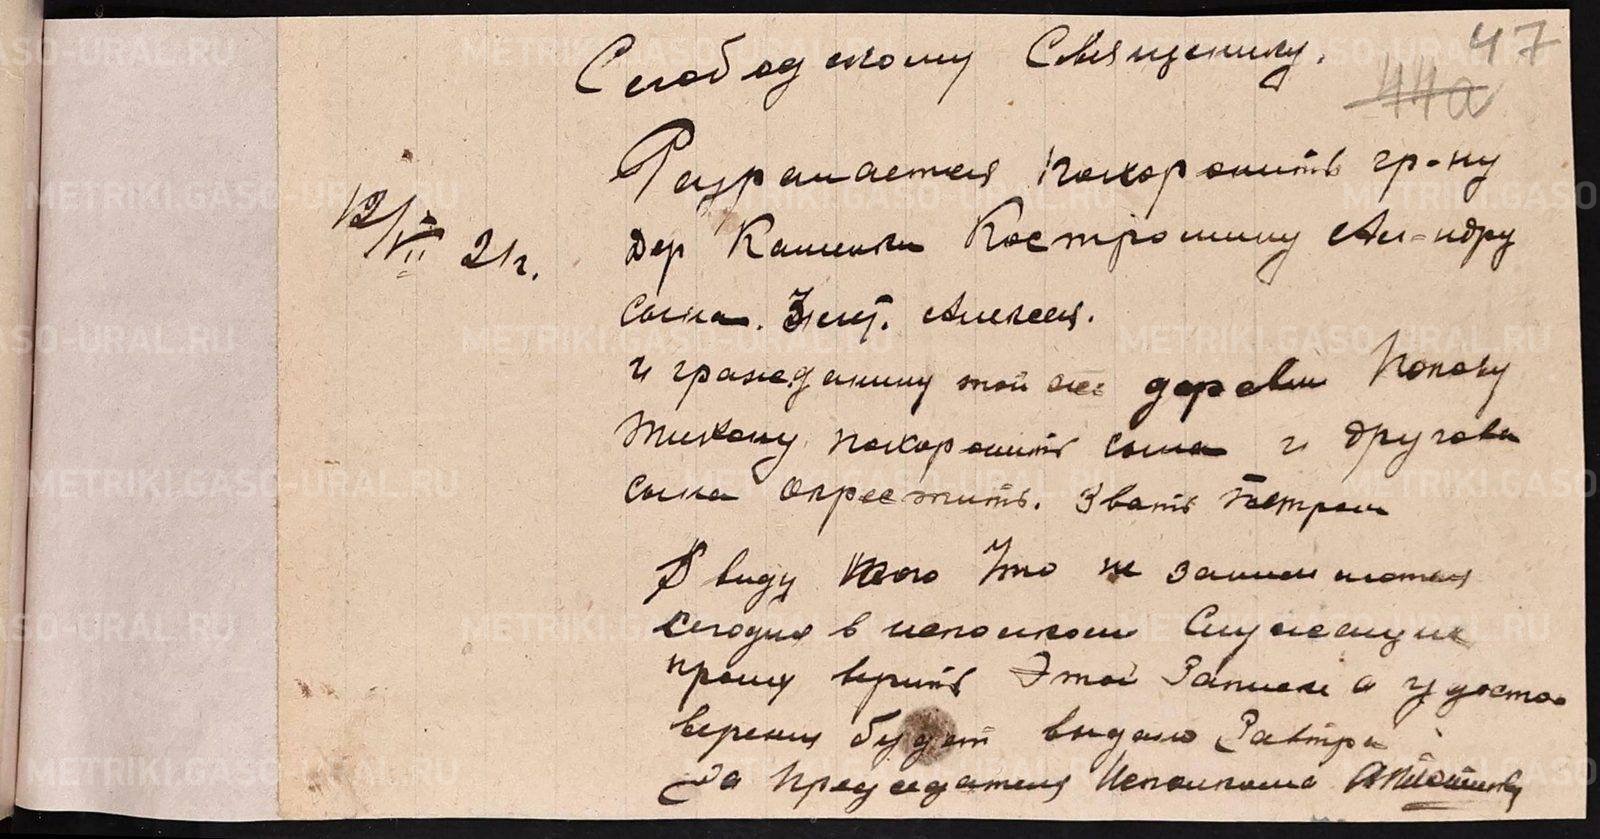 47
44а
Слободскому Священику.
Разрешается похоронить гр-ну
12/VII 21г.
дер Каменки Костромину Ал-ндру
сына. 3 лет. Алексея.
и гражданину той же деревни Попову
Тихону похоронить сына и другова
сына окрестить. Звать Петром
В виду того Что не занимаются
сегодня в исполкоме Служащие
прошу верить Этой Записке а удосто-
верения будет выдано Завтра
За председателя Исполкома
METRIKI.GASO-URAL.RU